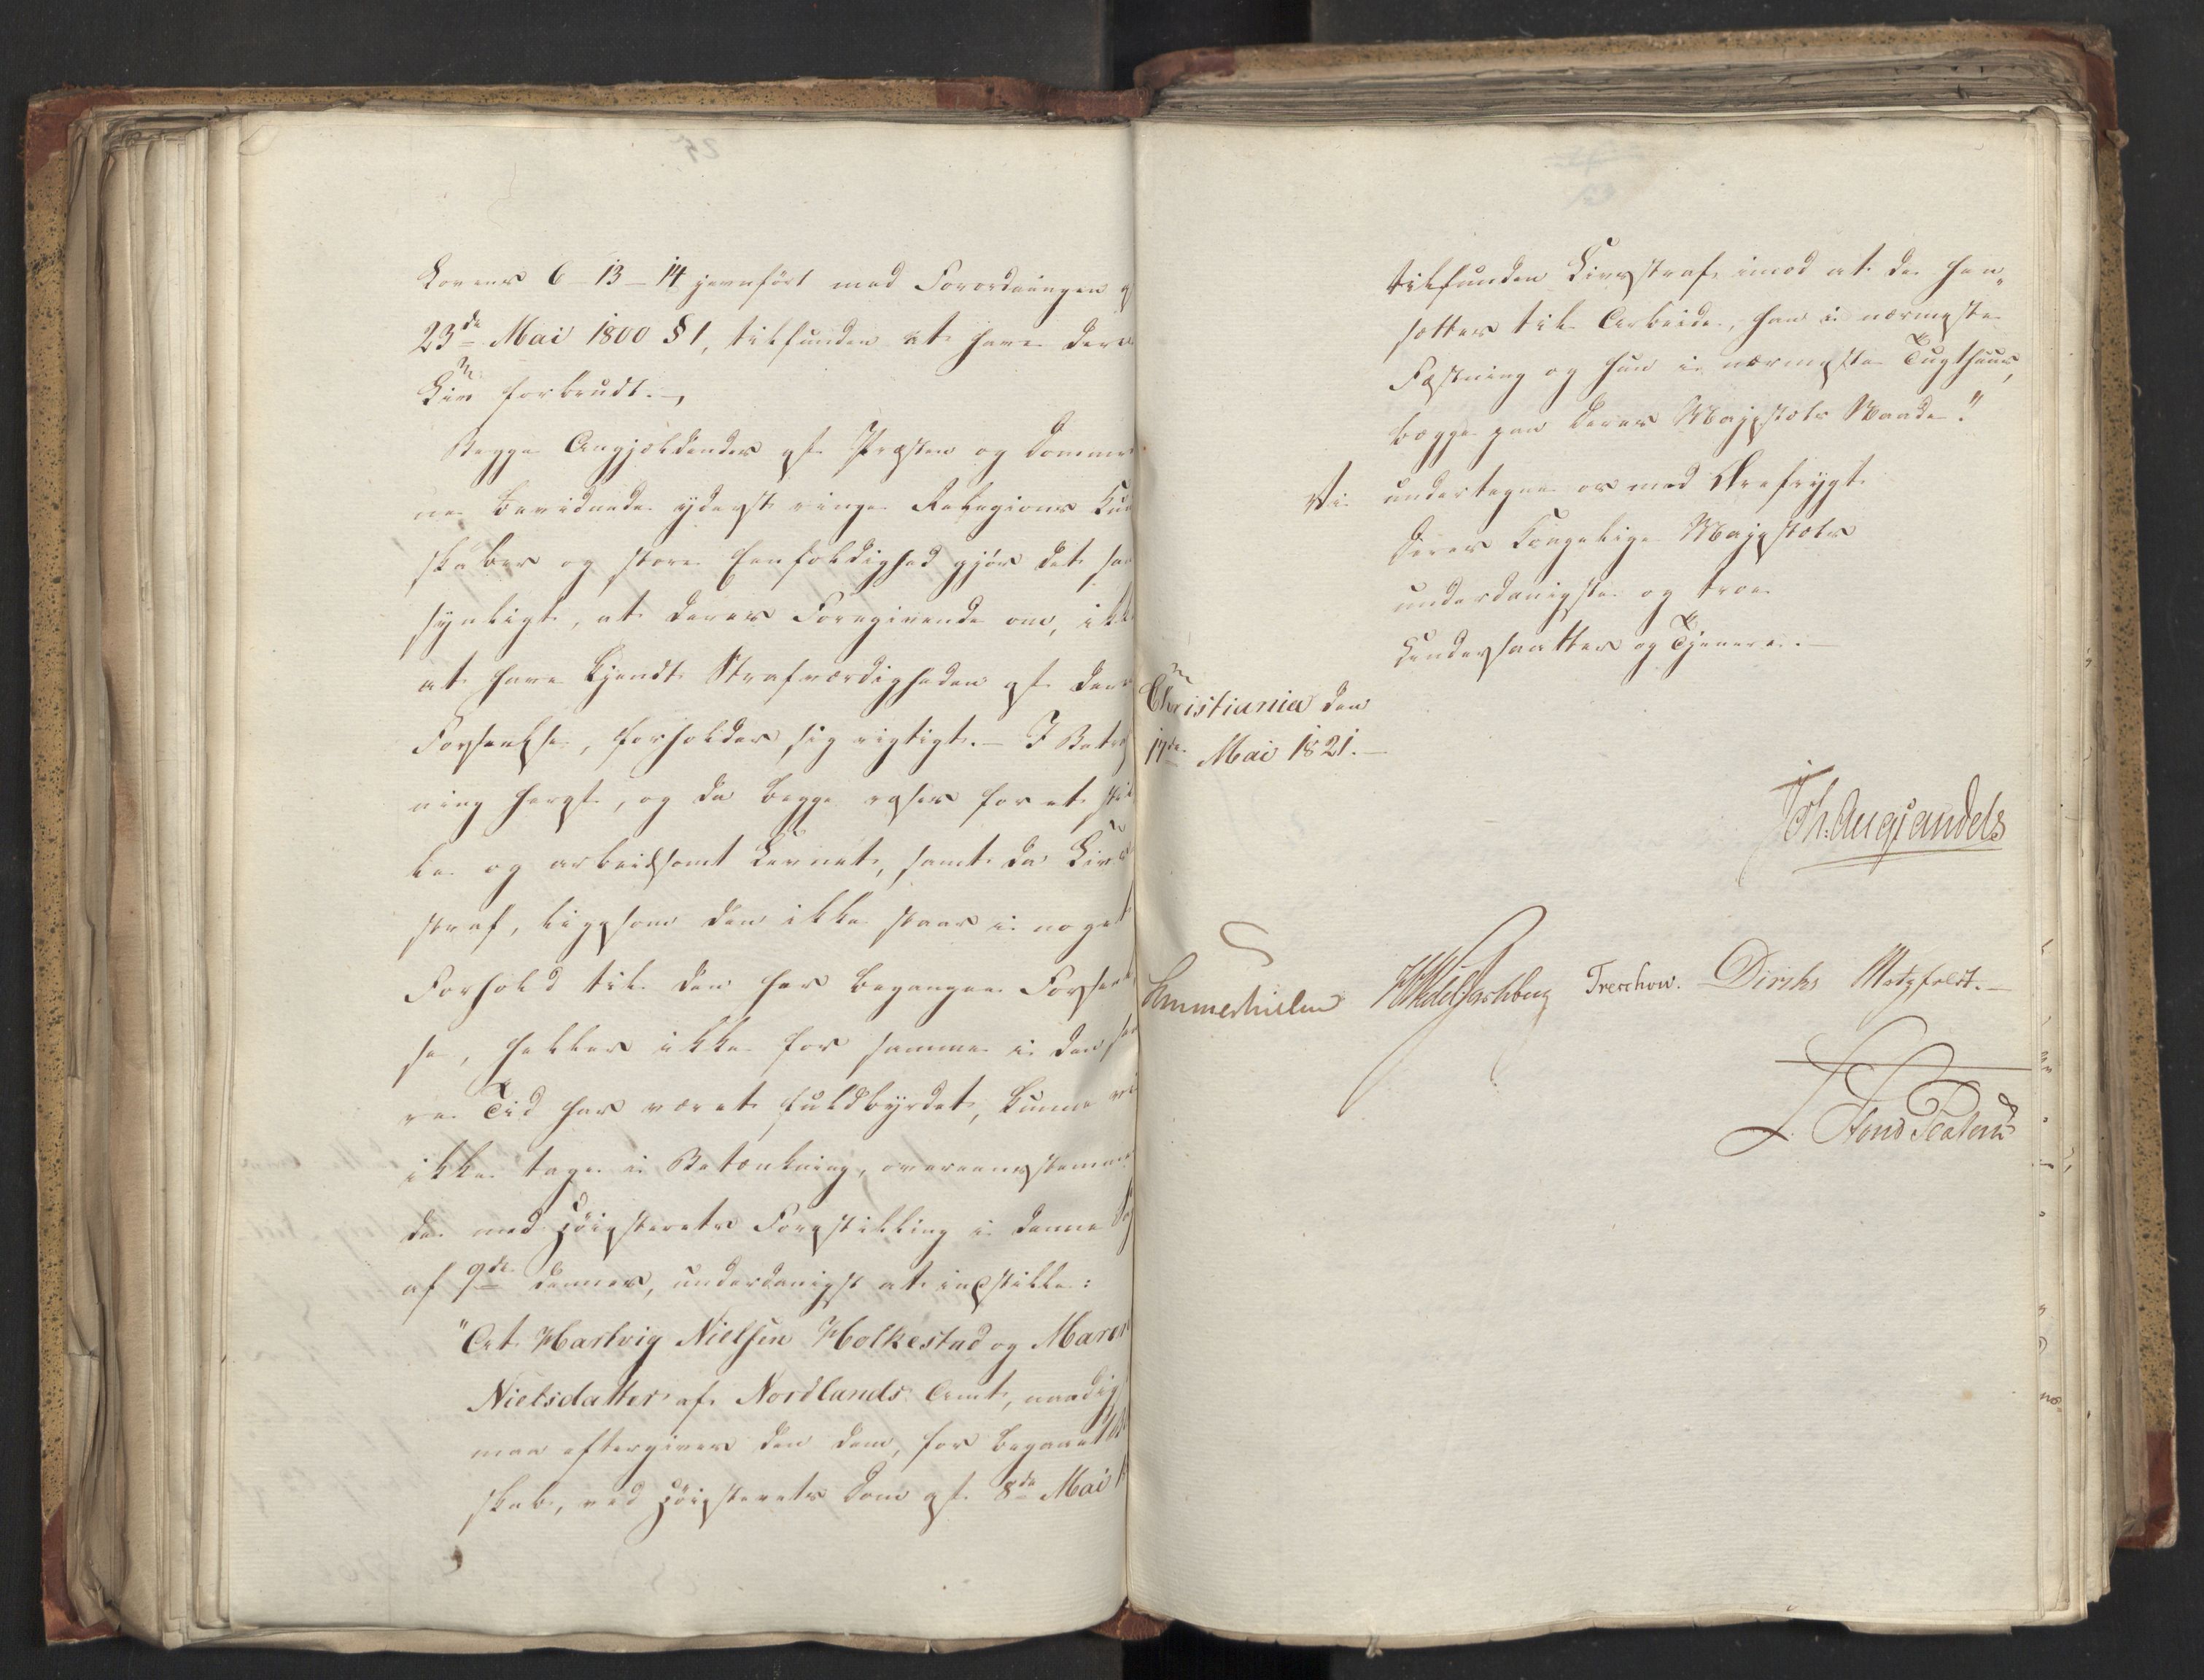 Lovens 6-13-14 jevnført med Forordningen af
23de Mai 1800 § 1, tilfunden at have deres
Liv forbrudt.
Begge Angjældendes af Præsten og Dommer
ne bevidnede yderst ringe Religions Kund
skaber og store Eenfoldighed gjør det sand
synligt, at deres Foregivende om, ikke
at have kjendt Strafværdigheden af deres
Forseelse, forholder sig rigtigt. – I Betragt
ning heraf, og da begge roses for et stil
le og arbeidsomt Levnet, samt da Livs
straf, ligesom den ikke staar i noget
Forhold til den her begangne Forseel
se, heller ikke for samme i den se
re Tid har været fuldbyrdet, kunne vi
ikke tage i Betænkning, overeensstemmen
de med Høiesterets Forestilling i denne Sag
af 9de dennes, underdanigst at indstille:
"At Hartvig Nielsen Holkestad og Maren
Nielsdatter af Nordlands Amt, naadigst
maa eftergives den dem, for begaaet
skab, ved Høiesterets Dom af 8de Mai
25
tilfunden Livsstraf imod at de hen„
sættes til Arbeide, han i nærmeste
Fæstning og hun i nærmeste Tugthuus,
begge paa Deres Majestæts Naade."
Vi undertegne os med Ærefrygt
Deres Kongelige Majestæts
underdanigste og troe
Undersaatter og Tjenere. –
Christiania den
17de Mai 1821. –
Joh. Aug. Sandels
Sommerhielm HWedelJarlsberg Treschow. Diriks Motzfeldt. –